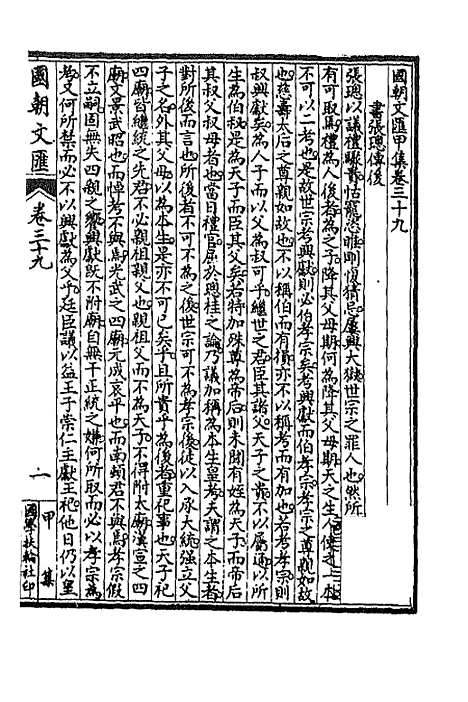 國朝文匯甲集卷三十九
書張璁傳後
張璁以議禮驟貴怙寵恣睢剛愎猜忌屢興大獄世宗之罪人也然所
有可取焉禮為人後者為之子降其父母期何為降其父母期天之生人使之一本
不可以二考也是故世宗考興獻則必伯孝宗矣考興獻而伯孝宗孝宗之尊親如故
也慈壽太后之尊親如故也不以稱伯而有損亦不以稱考而有加也若考孝宗則
叔興獻矣為人子而以父為叔可乎繼世之君臣其諸父天子之貴不以屬通以所
生為伯叔是為天子而臣其父矣若特加殊尊為帝后則未聞有姪為天子而帝后
其叔父叔母者也當日禮官屈於恩桂之論乃議加稱為本生皇考夫謂之本生者
對所後而言也所後者不可不為之後世宗可不為孝宗後徒以入承大統強立父
子之名外其父母以為本生是亦不可已矣乎且所貴乎為後者重祀事也天子祀
四廟皆繼統之先君不必親祖親父也親祖父而不為天子不得附太廟漢宣之四
廟文景武昭也而悼考不與焉光武之四廟元成哀平也而南頓君不與焉孝宗假
不立嗣固無失四親之饗興獻既不附廟自無干正統之嫌何所取而必以孝宗為
考又何所禁而必不以興獻為父乎廷臣議以益王子崇仁主獻王祀他日仍以皇
國朝文匯
卷三十九
一
甲集
國學扶輪社印